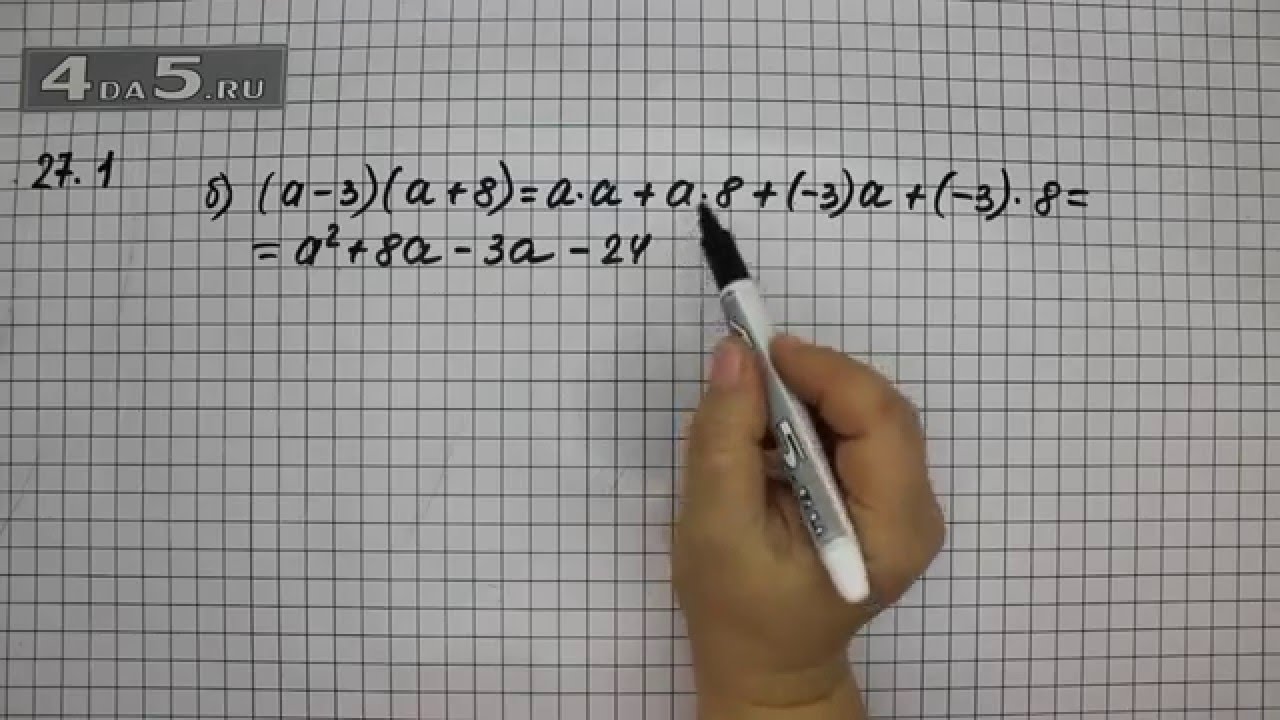 4DA5.RU
27.1
б) (a-3)(a+8)=a·a+a·8+(-3)a+(-3)·8=
=a²+8a-3a-24